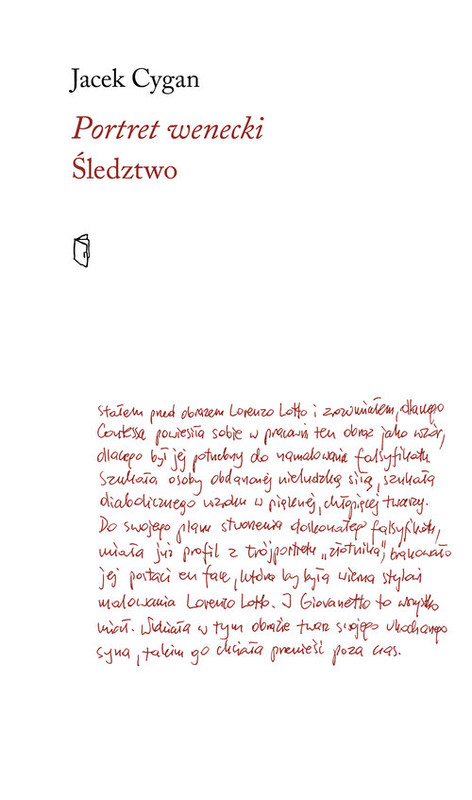 Jacek Cygan
Portret wenecki
Śledztwo
Stałem pred obrazem Lorenzo Lotto i zrozumiałem, dlaczego
Contessa powiesiła sobie w pracowni ten obraz jako wzór,
dlaczego był jej potrzebny do namalowania falsyfikatu.
Szukała osoby obdarzonej nieludzką siłą, szukała
diabolicznego wzroku w pięknej, chłopięcej twarzy.
Do swojego planu stworzenia doskonałego falsyfikatu,
miała już profil z trójportretu „złotnika”, brakowało
jej postaci en face, która by była wierna stylowi
malowania Lorenzo Lotto. I Giovanetto to wszystko
miał. Widziała w tym obrazie twarz swojego ukochanego
syna, takim go chciała przenieść poza czas.